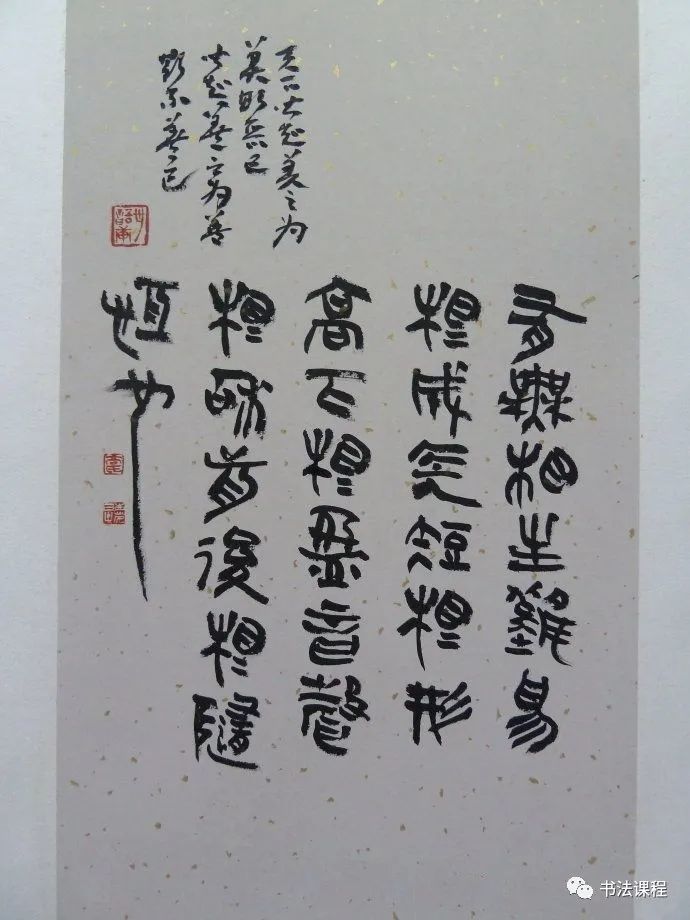 天下皆知美之为
美斯恶已
皆知善之为善
斯不善已
有無相生難易
相成長短相形
高下相盈音聲
相和前後相隨
恒也
书法课程